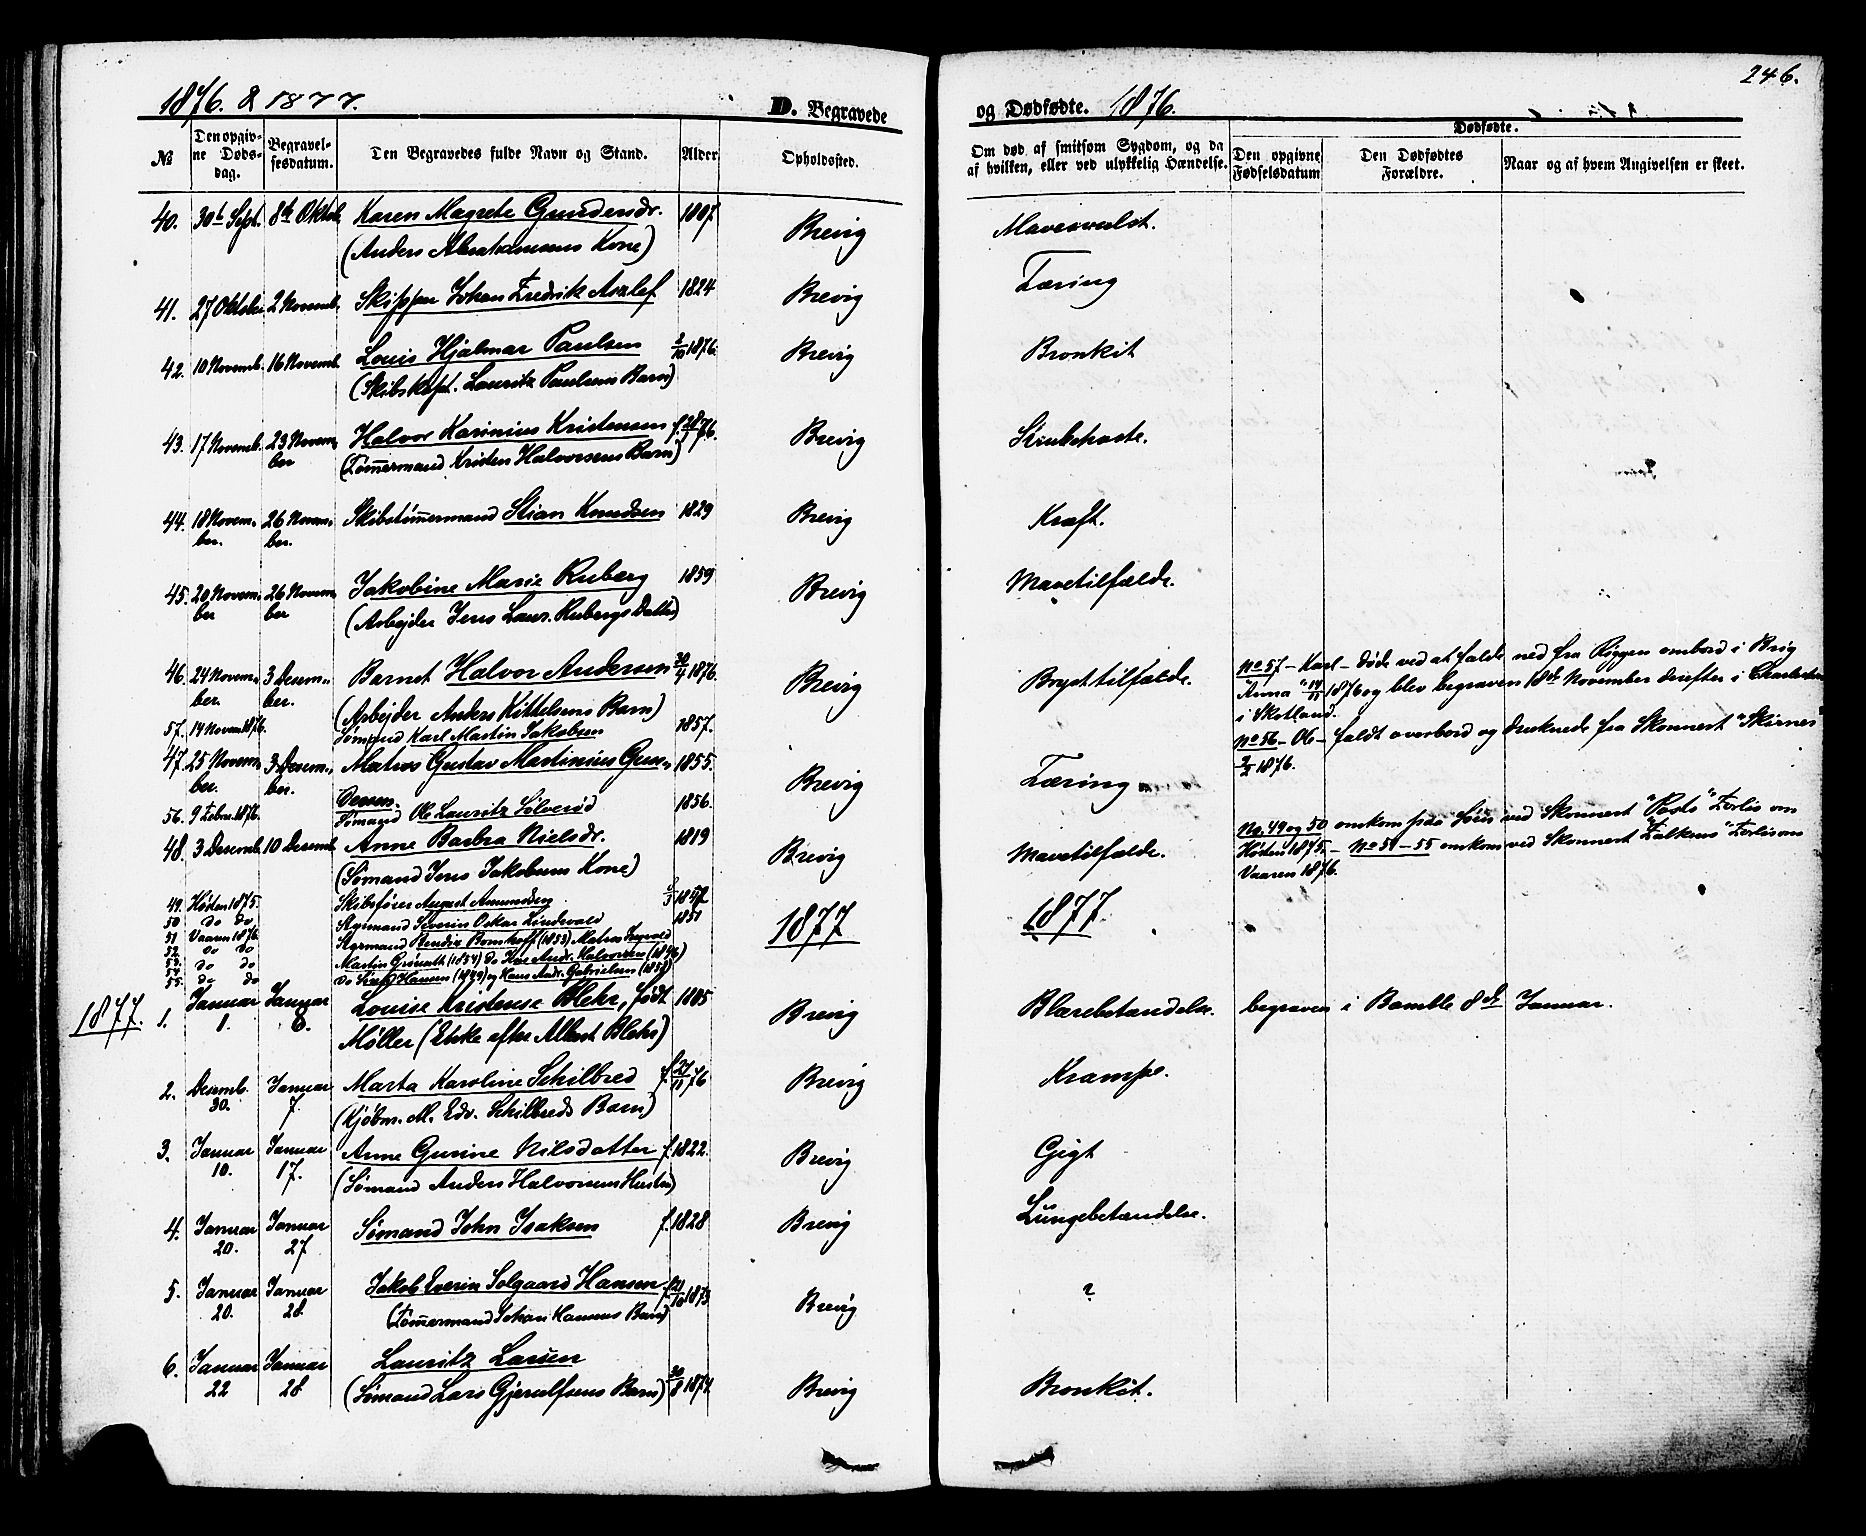 246.
1876. & 1877.
D. Begravede og Dødfødte. 1876.
№ | Den opgivne Dødsdag. | Begravelsesdatum. | Den Begravedes fulde Navn og Stand. | Alder | Opholdssted. | Om død af smitsom Sygdom, og da af hvilken, eller ved ulykkelig Hændelse. | Dødfødte. Den opgivne Fødselsdatum | Den Dødfødtes Forældre. | Naar og af hvem Angivelsen er skeet.
40. 30te Sept. 8de Oktob. Karen Magrete Gundersdr. 1807 Brevig Mavesvulst.
(Anders Abrahamsens Kone)
41. 27 Oktober 2 Novemb. Skipper Johan Fredrik Axlef. 1824 Brevig Tæring
42. 10 Novemb. 16 Novemb. Louis Hjalmar Paulsen 2/10 1876. Brevig Bronkit
(Skibskapt. Lauritz Paulsens Barn)
43. 17 Novemb. 23 Novem- Halvor Karinius Kristensen f. 28/7 76. Brevig Strubehoste.
ber (Tømmermand Kristen Halvorsens Barn)
44. 18 Novem- 26 Novem- Skibstømmermand Stian Knudsen 1829 Brevig Kræft.
ber. ber.
45. 20 Novem- 26 Novem- Jakobine Marie Ruberg 1859 Brevig Mavetilfælde.
ber ber (Arbejder Jens Laur. Rubergs Datter)
46. 24 Novem- 3 Desem- Barnet Halvor Andersen 30/4 1876. Brevig Brysttilfælde. No 57 - Karl - døde ved at falde ned fra Riggen ombord i Brig
ber. ber. "Anna" 14/11 1876 og blev begraven 18de November derefter i Charleston
(Arbejder Anders Kittelsens Barn) i Skotland.
57. 14 Novem. 1876. Sømand Karl Martin Jakobsen 1857. No 56 - Ole - faldt overbord og druknede fra Skonnert "Skirner"
47. 25 Novem- 3 Desem- Matros Gustav Martinius Gun- 1855. Brevig Tæring 9/2 1876.
ber. ber. dersen.
56. 9 Febr. 1876. Sømand Ole Lauritz Solverød 1856.
48. 3 Desemb. 10 Desemb. Anne Barbra Nielsdr. 1819 Brevig Mavetilfælde. No. 49 og 50 omkom paa Søen ved Skonnert "Rosts" Forlis om
(Sømand Jens Jakobsens Kone) Høsten 1875. - No 51-55 omkom ved Skonnert "Falkens" Forlis om
Vaaren 1876.
49. Høsten 1875. Skibsfører August Amundsen
50 do do Styrmand Severin Oskar Lindevald 1851
51 Vaaren 1876. Styrmand Bendix Bomhoff (1853) Matros
52. do do
53. do do Martin Grønseth (1854) do Andr. Halvorsen (1846)
54
55. do do do Hansen (1849) og Hans Andr. Gabrielsen
1877 1877.
1877. 1. Januar 1. Januar 8. Louise Kristense Blehr, født 1805 Brevig Blærebetændelse. begraven i Bamble 8de Januar.
Møller (Enke efter Albert Blehr)
2. Desemb. 30. Januar 7. Marta Karoline Schilbred f. 27/11 76 Brevig Krampe.
(Kjøbm. M. Edv. Schilbreds Barn)
3. Januar 10. Januar 17. Anne Gurine Nilsdatter f. 1822 Brevig Gigt
(Sømand Anders Halvorsens Hustru)
4. Januar 20. Januar 27. Sømand John Isaksen f. 1828 Brevig Lungebetændelse.
5. Januar 20. Januar 28. Jakob Everin Solgaard Hansen f. 21/10 1873 Brevig ?
(Tømmermand Johan Hansens Barn)
6. Januar 22 Januar 28. Lauritz Larsen 30/8 1874. Brevig Bronkit.
(Sømand Lars Gjerulfsens Barn)